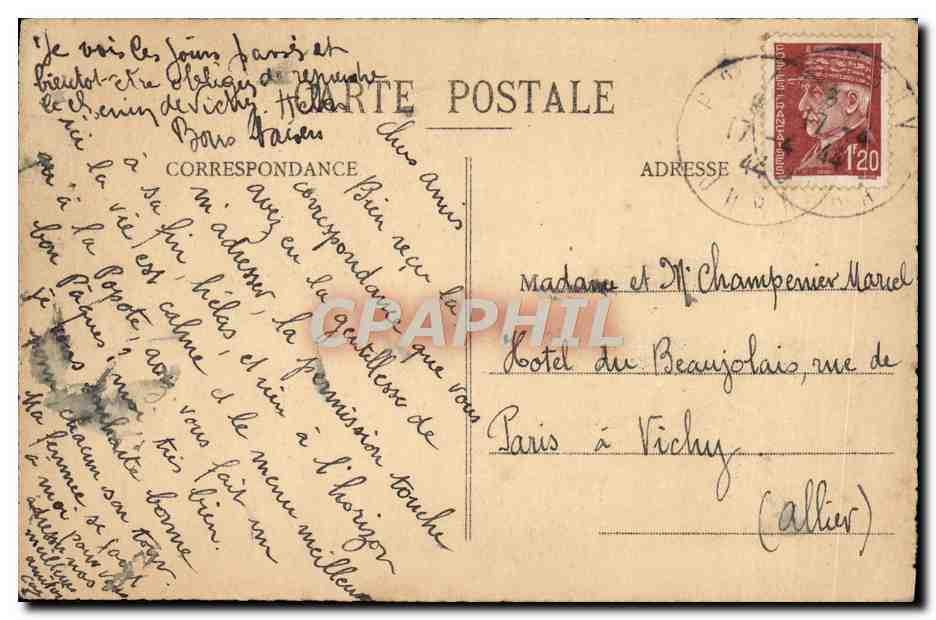 Je vois les jours passés et
bientot être obligé de reprendre
le chemin de Vichy. Hélas
CARTE POSTALE
CORRESPONDANCE
ADRESSE
POSTES FRANÇAISES
1F20
17 -4
44
Chers amis
Bien reçu la
correspondance que vous
avez eu la gentillesse de
m'adresser, la permission touche
à sa fin, hélas, et rien à l'horizon
ici la vie est calme et le menu meilleur
qu'à la Popote, avez vous fait un
bon Pâques, moi très bien.
je vous souhaite bonne
chacun son tour.
Ma femme se joint
à moi pour vous
adresser nos
meilleures
amitiés
Madame et Mr Champenier Marcel
Hotel du Beaujolais, rue de
Paris à Vichy
(Allier)
CPAPHIL